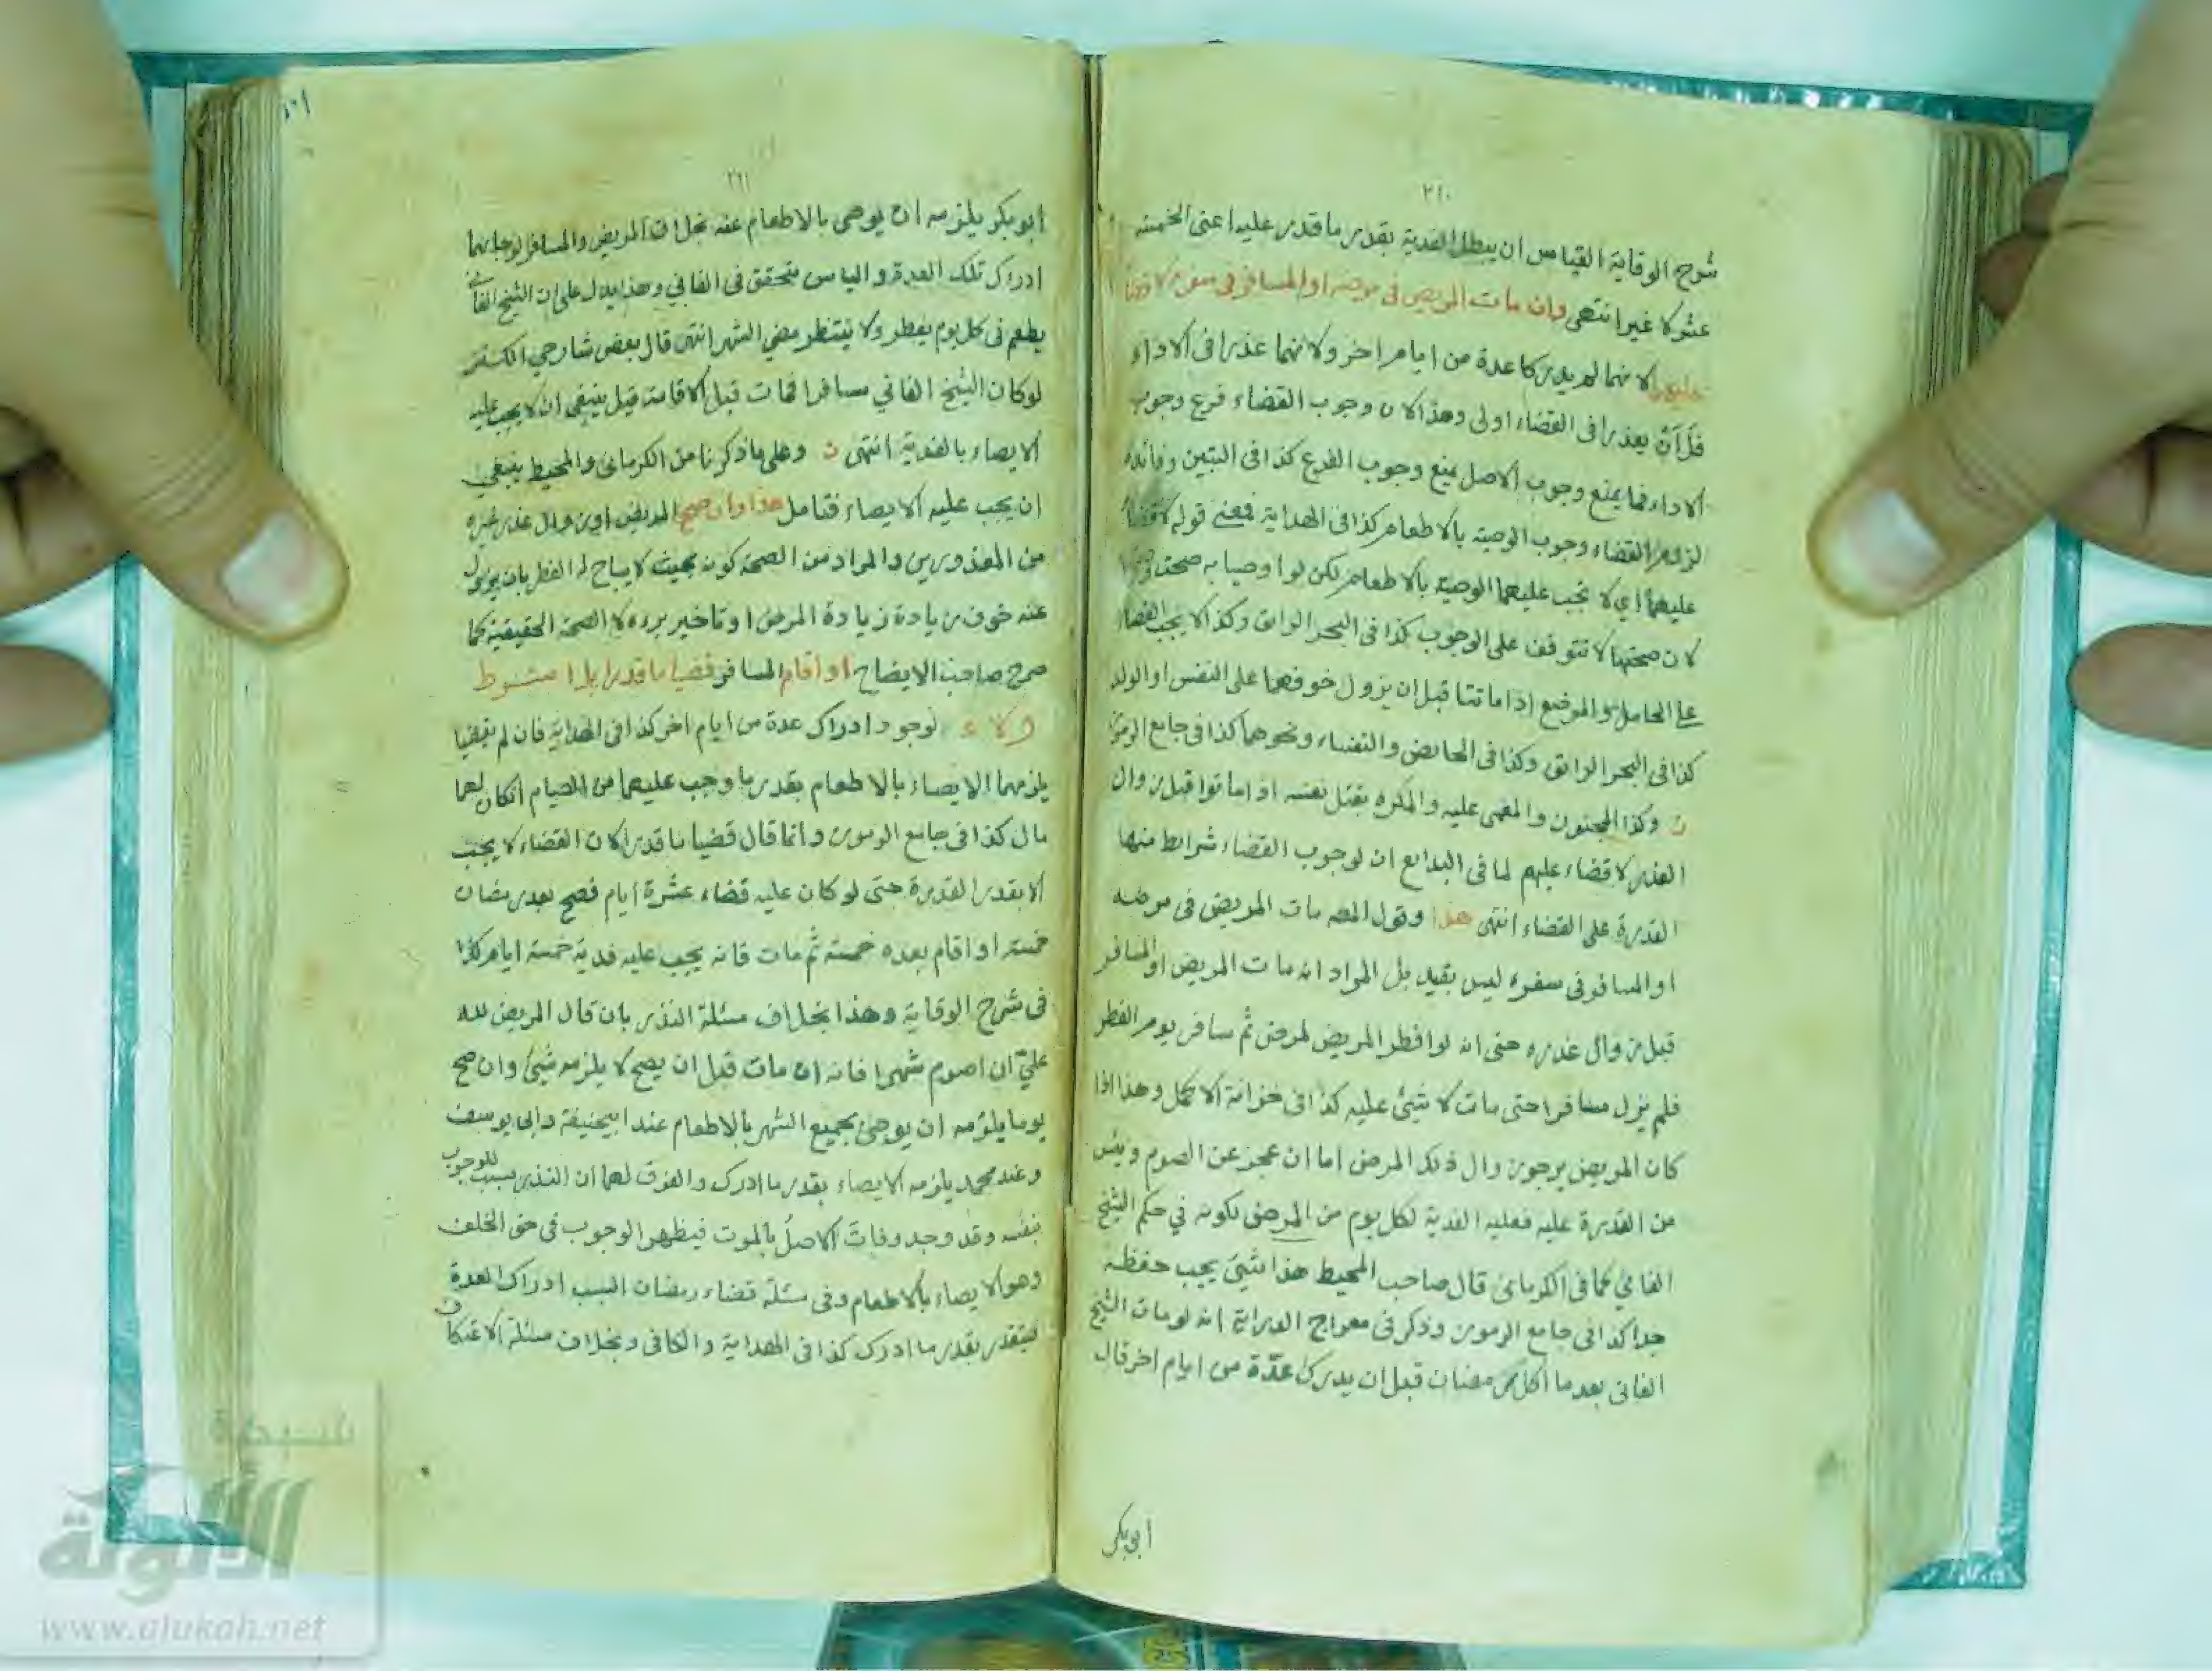 ٢١٠
شرح الوقاية القياس ان يبطل الفدية بقدر ما قدر عليه اعنى الخمسة
عشر لا غير انتهى وان مات المريض فى مرضه او المسافر فى سفره لا قضاء
عليهما لانهما لم يدركا عدة من ايام اخر ولانهما عذرا فى الاداء
فلأن يعذرا فى القضاء اولى وهذا لان وجوب القضاء فرع وجوب
الاداء فما يمنع وجوب الاصل يمنع وجوب الفرع كذا فى التبين وفائدة
لزوم القضاء وجوب الوصية بالاطعام كذا فى الهداية فمعنى قوله لا قضاء
عليهما اي لا تجب عليهما الوصية بالاطعام لكن لو اوصيا به صحت
لان صحتها لا تتوقف على الوجوب كذا فى البحر الرائق وكذا لا يجب القضاء
على الحامل والمرضع اذا ماتتا قبل ان يزول خوفهما على النفس او الولد
كذا فى البحر الرائق وكذا فى الحائض والنفساء ونحوهما كذا فى جامع الرموز
ن وكذا المجنون والمغمى عليه والمكره بقتل نفسه اذا ماتوا قبل زوال
العذر لا قضاء عليهم لما فى البدايع ان لوجوب القضاء شرائط منها
القدرة على القضاء انتهى هذا وقول المصه مات المريض فى مرضه
او المسافر فى سفره ليس بقيد بل المراد انه مات المريض او المسافر
قبل زوال عذره حتى انه لو افطر المريض لمرض ثم سافر يوم الفطر
فلم يزل مسافرا حتى مات لا شئ عليه كذا فى خزانة الاكمل وهذا اذا
كان المريض يرجو زوال ذلك المرض اما ان عجز عن الصوم ويئس
من القدرة عليه فعليه الفدية لكل يوم من المرض لكونه في حكم الشيخ
الفانى كما فى الكرمانى قال صاحب المحيط هذا شئ يجب حفظه
جدا كذا فى جامع الرموز وذكر فى معراج الدراية انه لو مات الشيخ
الفانى بعد ما اكل رمضان قبل ان يدرك عدّة من ايام اخر قال
ابو بكر
٢١١
ابو بكر يلزمه ان يوصى بالاطعام عنه بخلاف المريض والمسافر لرجائهما
ادراك تلك العدة والياس متحقق فى الفانى وهذا يدل على ان الشيخ الفانى
يطعم فى كل يوم يفطر ولا ينتظر مضي الشهر انتهى قال بعض شارحي الكنز
لو كان الشيخ الفاني مسافرا فمات قبل الاقامة قيل ينبغى ان لا يجب عليه
الايصاء بالفدية انتهى ن وعلى ما ذكرنا من الكرمانى والمحيط ينبغي
ان يجب عليه الايصاء فتامل هذا وان صح المريض او زال عذر غيره
من المعذورين والمراد من الصحة كونه بحيث لا يباح له الفطر بان يزول
عنه خوف زيادة زيادة المرض او تاخير برءه لا الصحة الحقيقية كما
صرح صاحب الايضاح او اقام المسافر قضيا ما قدرا بلا شرط
ولاء لوجود ادراك عدة من ايام اخر كذا فى الهداية فان لم يقضيا
يلزمهما الايصاء بالاطعام بقدر ما وجب عليهما من الصيام ان كان لهما
مال كذا فى جامع الرموز وانما قال قضيا ما قدرا لان القضاء لا يجب
الا بقدر القدرة حتى لو كان عليه قضاء عشرة ايام فصح بعد رمضان
خمسة او اقام بعده خمسة ثم مات فانه يجب عليه فدية خمسة ايام كذا
فى شرح الوقاية وهذا بخلاف مسئلة النذر بان قال المريض لله
عليّ ان اصوم شهرا فانه ان مات قبل ان يصح لا يلزمه شئ وان صح
يوما يلزمه ان يوصى بجميع الشهر بالاطعام عند ابيحنيفة وابى يوسف
وعند محمد يلزمه الايصاء بقدر ما ادرك والفرق لهما ان النذر سبب للوجوب
بنفسه وقد وجد وفات الاصل بالموت فيظهر الوجوب فى حق الخلف
وهو الايصاء بالاطعام وفى مسئلة قضاء رمضان السبب ادراك العدة
ليتقدر بقدر ما ادرك كذا فى الهداية والكافى وبخلاف مسئلة الاعتكاف
شبكة
الألوكة
www.alukah.net